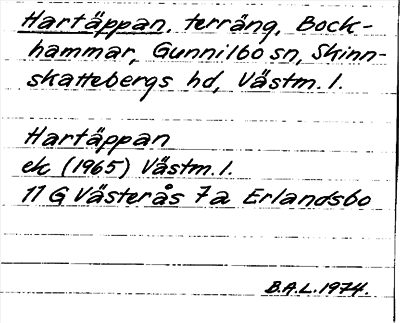 Hartäppan, terräng, Bock-
hammar, Gunnilbo sn, Skinn-
skattebergs hd, Västm. l.
Hartäppan
ek (1965) Västm. l.
11 G Västerås 7a Erlandsbo
B.A.L. 1974.